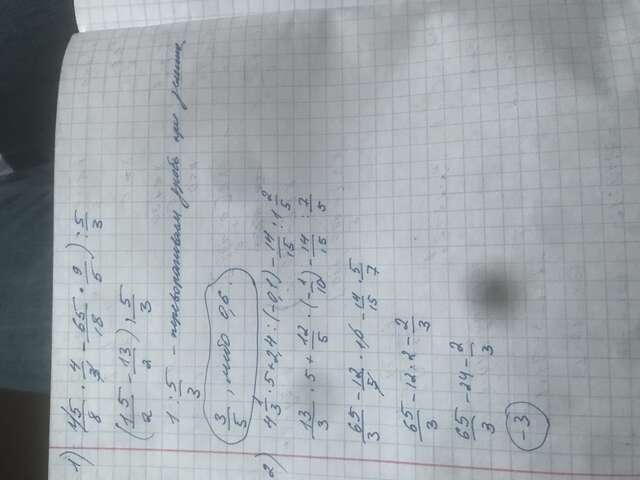 1) (45/8 · 4/3 - 65/18 · 9/5) : 5/3
(15/2 - 13/2) : 5/3
1 : 5/3 - переворачиваем дробь при
3/5, либо 0,6.
2) 4 1/3 · 5 + 2,4 : (-0,1) - 14/15 : 1 2/5
13/3 · 5 + 12/5 : (-1/10) - 14/15 : 7/5
65/3 - 12/5 · 10 - 14/15 · 5/7
65/3 - 12 · 2 - 2/3
65/3 - 24 - 2/3
-3